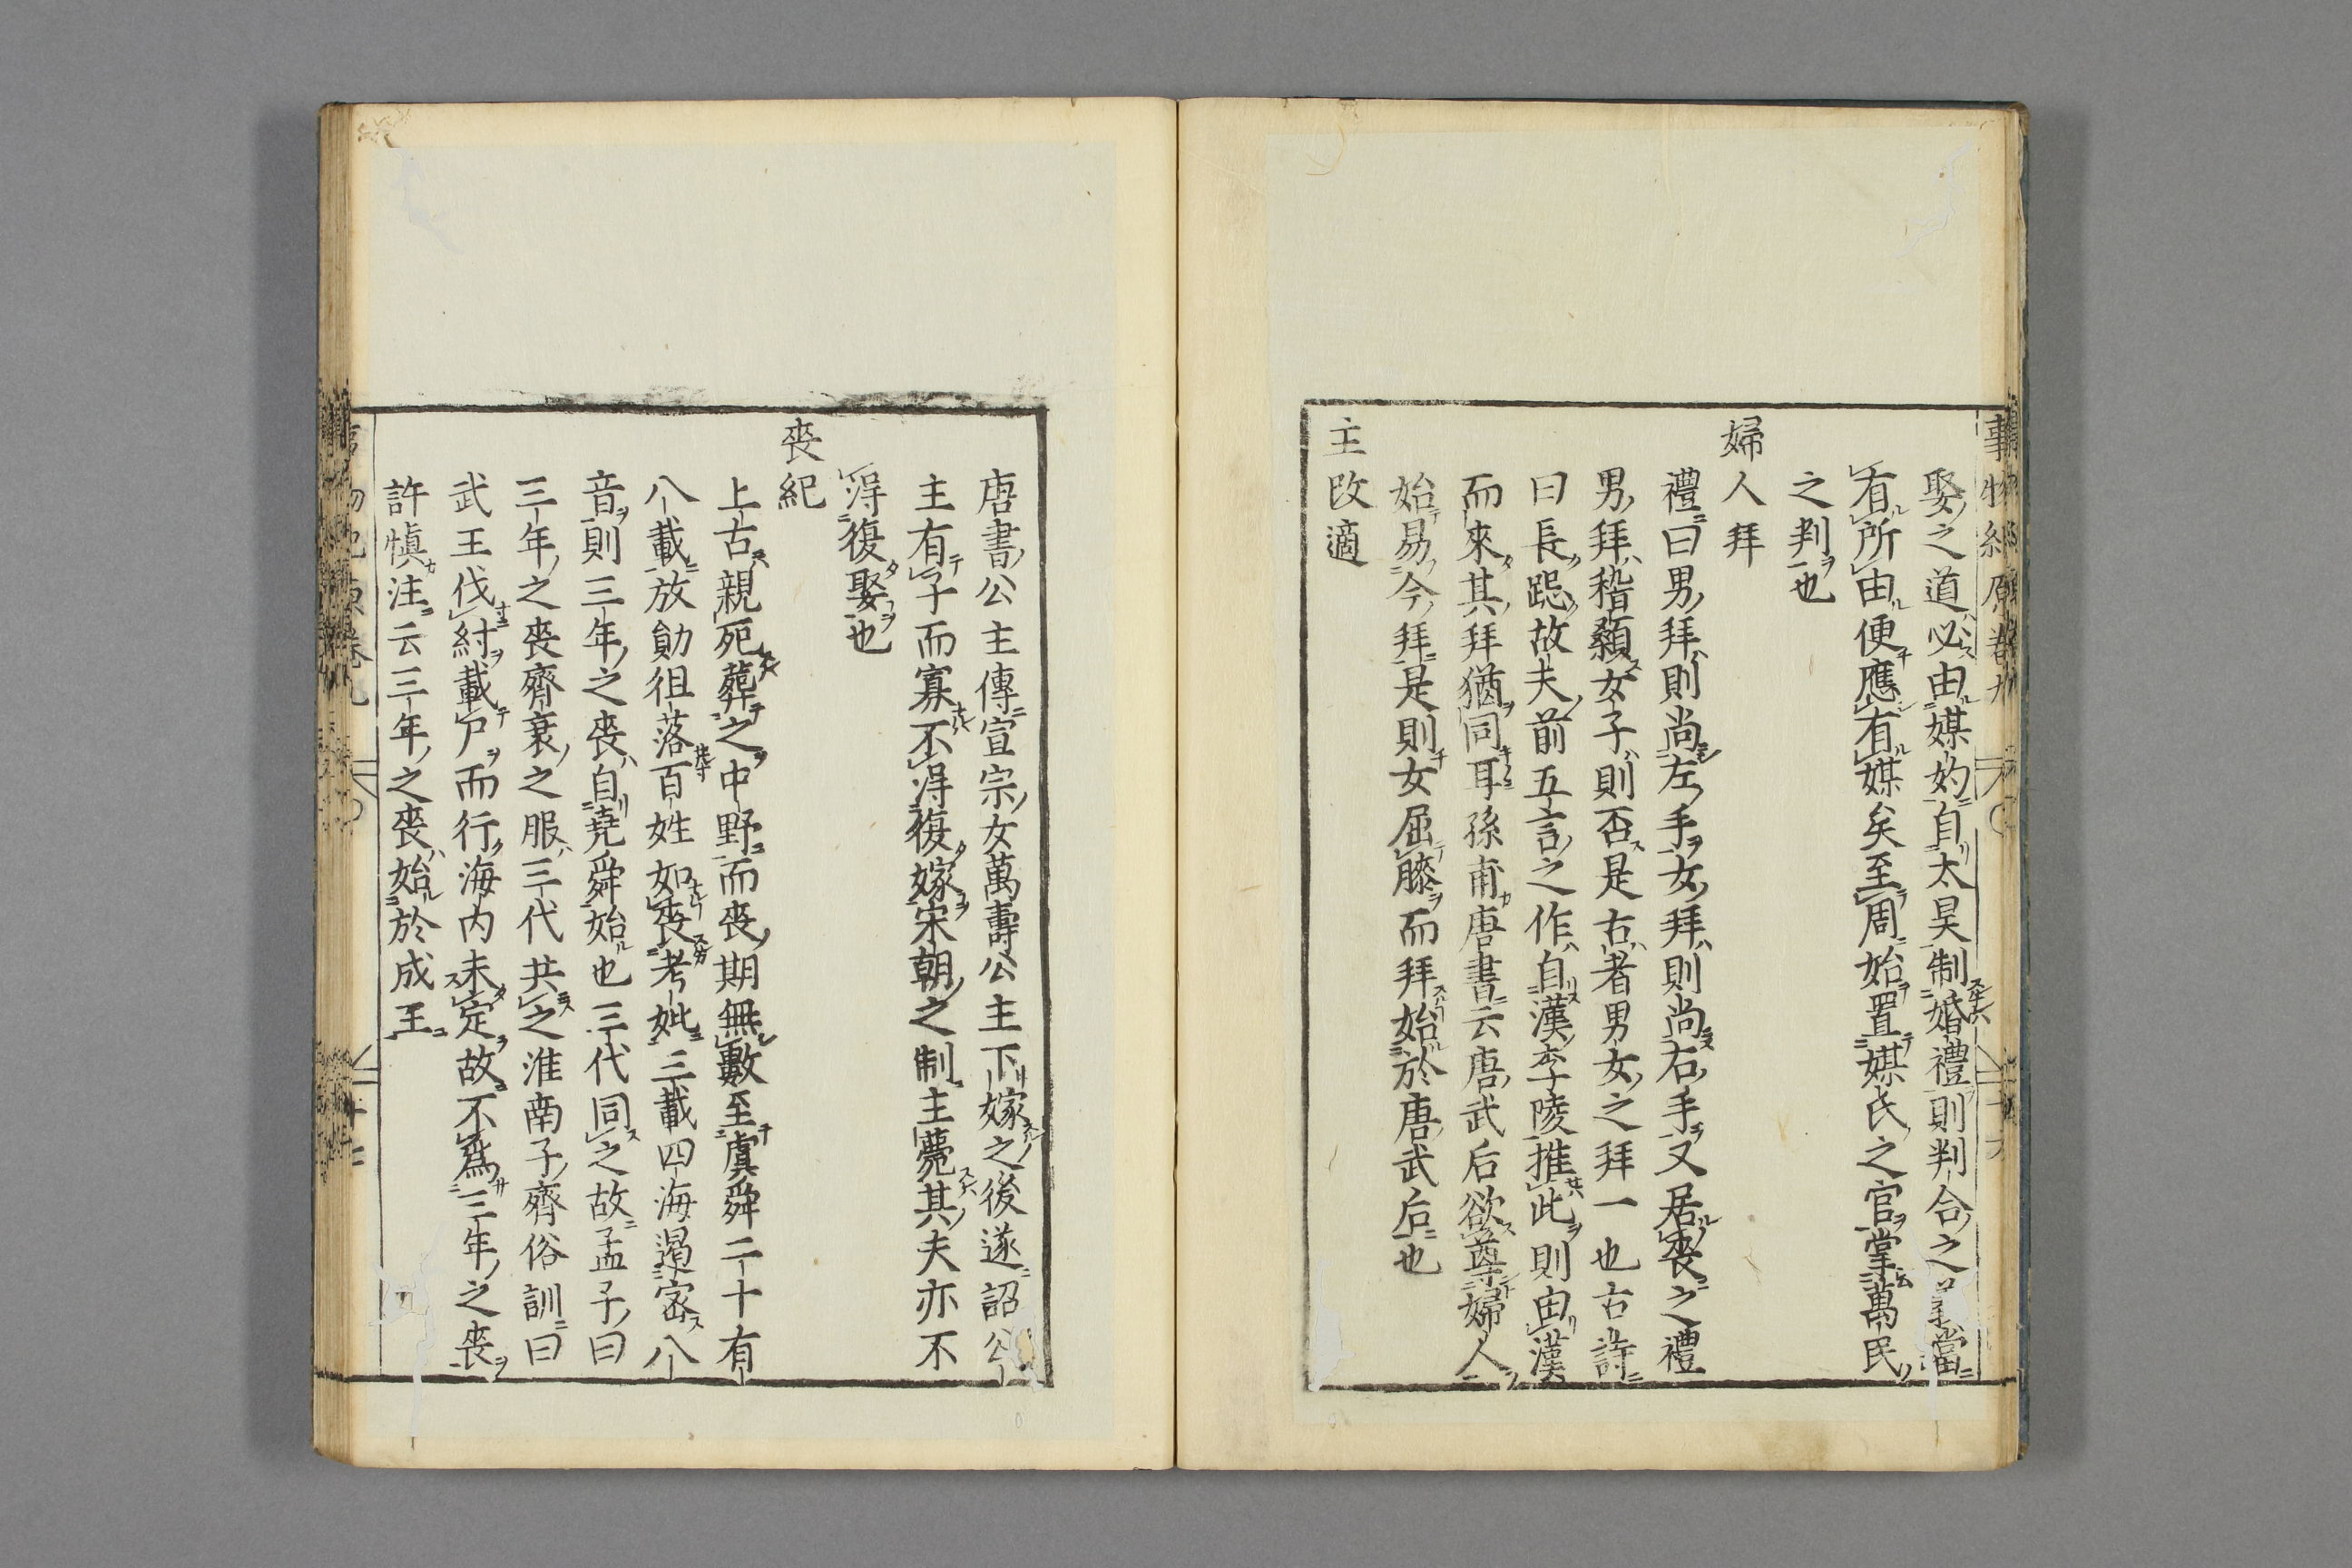 事物紀原卷九
娶之道必由媒妁自太昊制婚禮則判合之當
有所由便應有媒矣至周始置媒氏之官掌萬民
之判也
婦人拜
禮曰男拜則尚左手女拜則尚右手又居喪之禮
男拜稽顙女子則否是古者男女之拜一也古詩
曰長跽故夫前五言之作自漢李陵推此則由漢
而來其拜猶同耳孫甫唐書云唐武后欲尊婦人
始易今拜是則女屈膝而拜始於唐武后也
主改適
唐書公主傳宣宗女萬壽公主下嫁之後遂詔公
主有子而寡不得復嫁宋朝之制主薨其夫亦不
得復娶也
喪紀
上古親死葬之中野而喪期無數至虞舜二十有
八載放勛徂落百姓如喪考妣三載四海遏密八
音則三年之喪自堯舜始也三代同之故孟子曰
三年之喪齊衰之服三代共之淮南子齊俗訓曰
武王伐紂載尸而行海內未定故不為三年之喪
許慎注云三年之喪始於成王